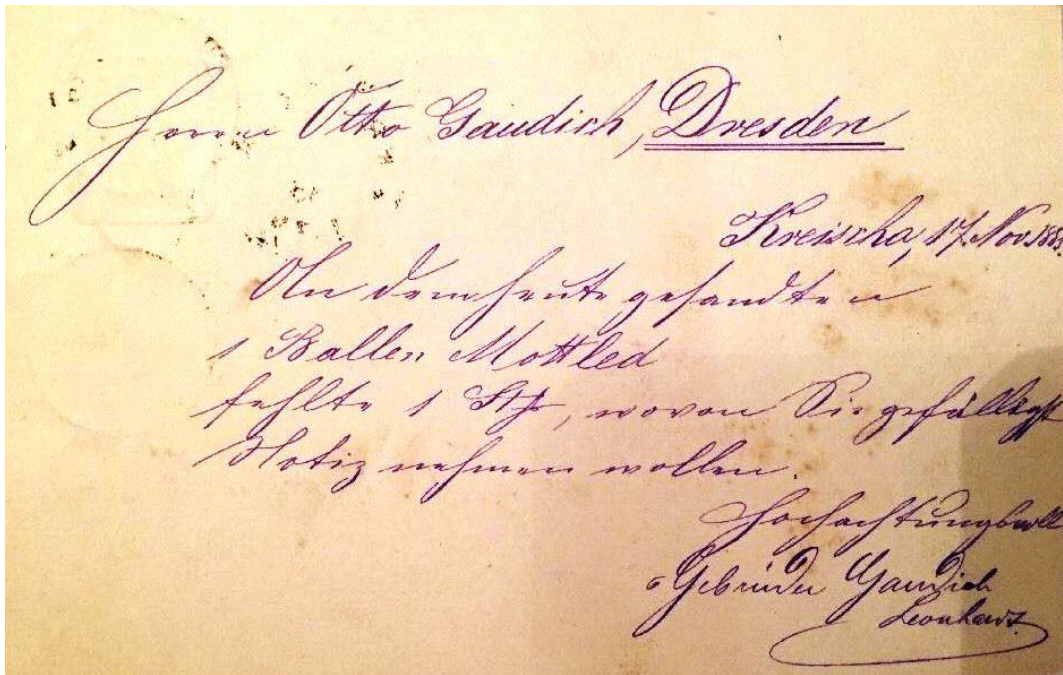 Herrn Otto Gaudich, Dresden
Kreischa, 17. Nov. 188
An dem heute gesandten
1 Ballen Mottled
fehlte 1 , wovon Sie gefälligst
Notiz nehmen wollen.
Hochachtungsvoll
Gebrüder Gaudich
Leonhardt